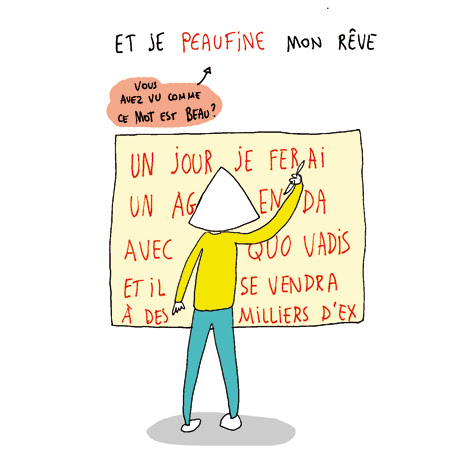 ET JE PEAUFINE MON RÊVE
VOUS
AVEZ VU COMME
CE MOT EST BEAU?
UN JOUR JE FERAI
UN AG EN DA
AVEC QUO VADIS
ET IL SE VENDRA
À DES MILLIERS D'EX